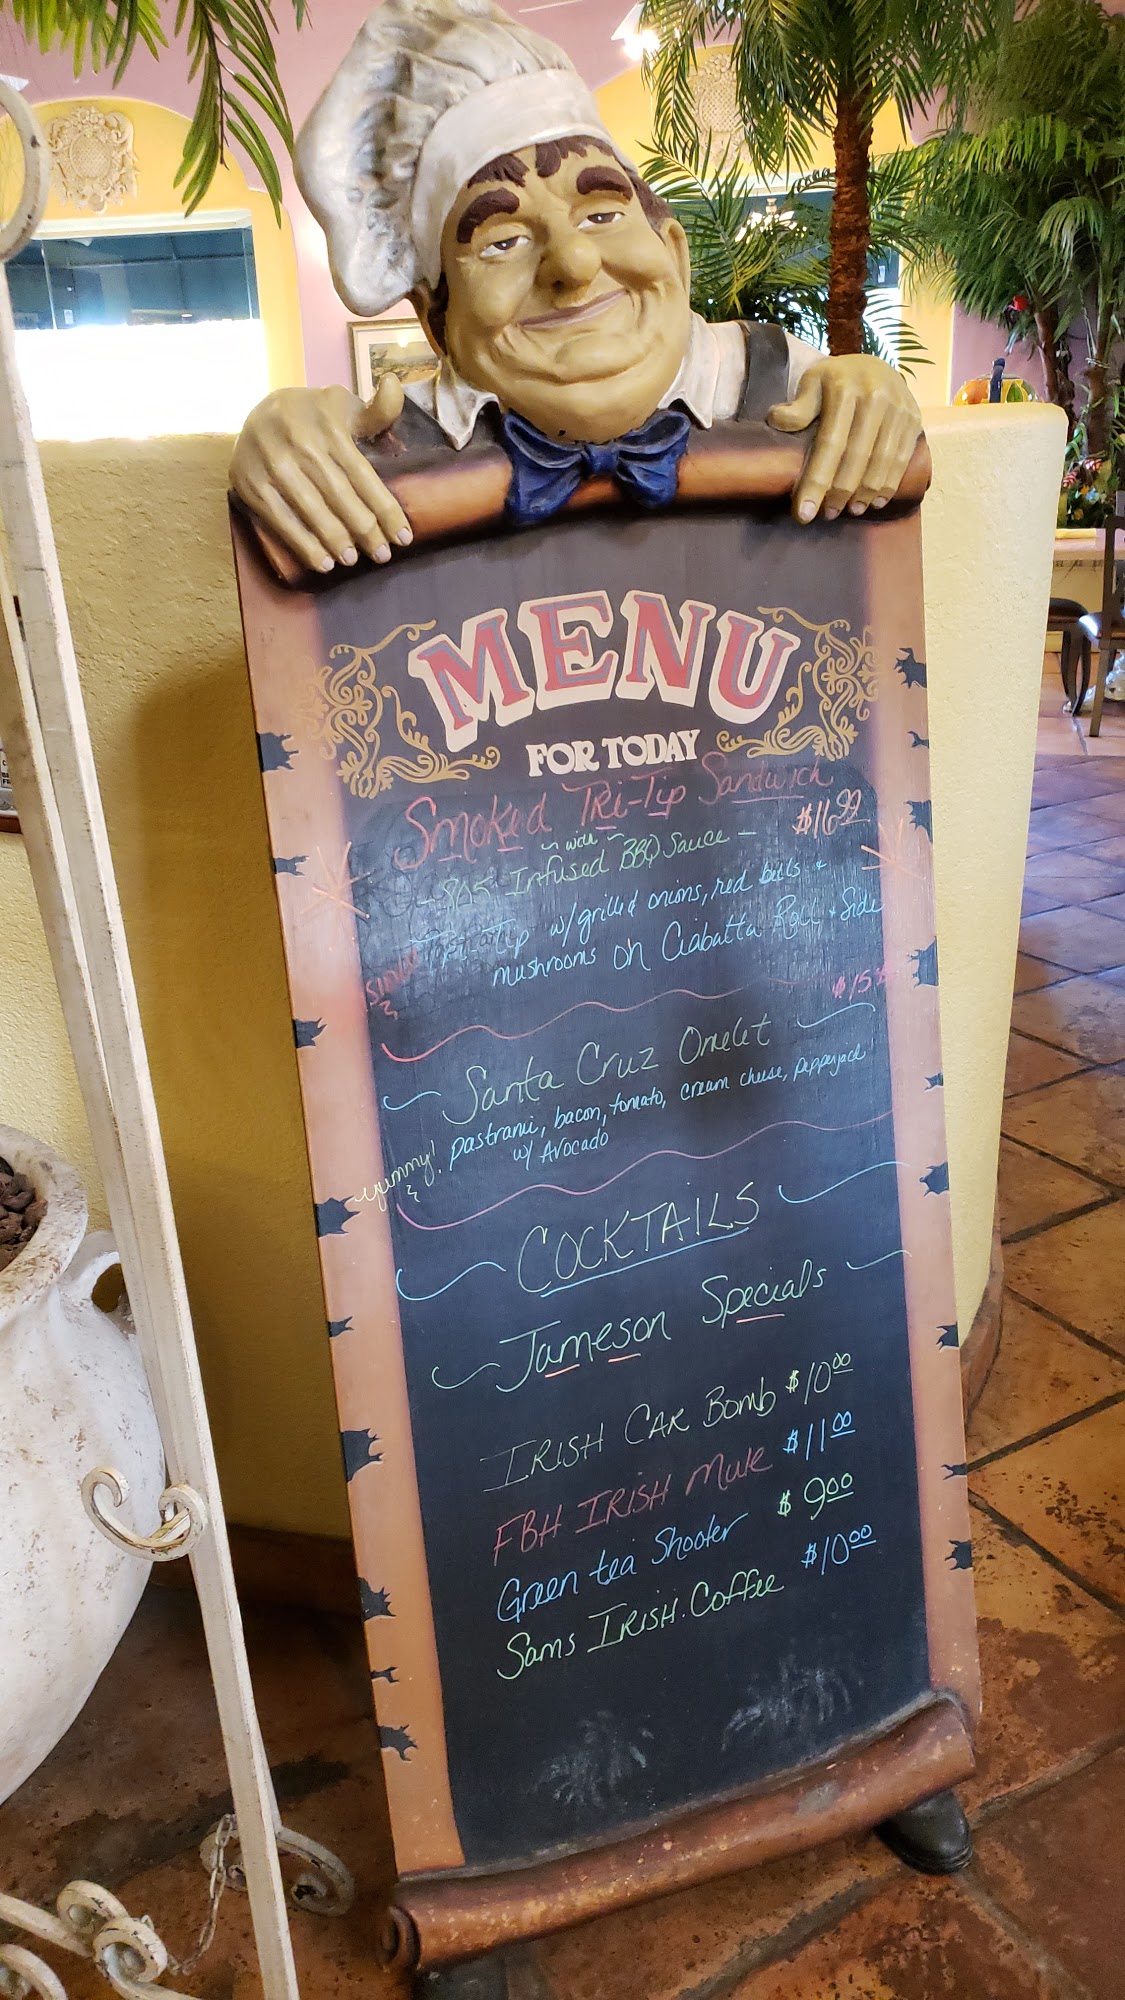 MENU
FOR TODAY
Smoked TRi-Tip Sandwich
$16.99
~ with ~
- 805 Infused BBQ Sauce -
Tri-Tip w/ grilled onions, red bells +
mushrooms on Ciabatta Roll + Side
$15.
Santa Cruz Omelet
yummy! pastrami, bacon, tomato, cream cheese, pepperjack
w/ Avocado
COCKTAILS
Jameson Specials
IRISH CAR Bomb $10.00
FBH IRISH Mule $11.00
Green tea Shooter $9.00
Sams IRISH Coffee $10.00